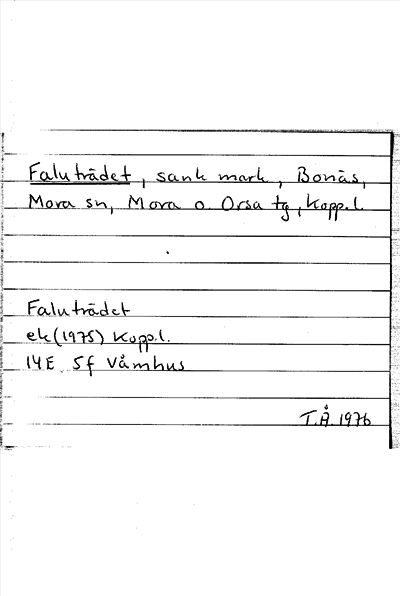 Faluträdet, sank mark, Bonäs,
Mora sn, Mora o. Orsa tg, Kopp.l.
Faluträdet
ek(1975) Kopp.l.
14E 5f Våmhus
T.Å. 1976